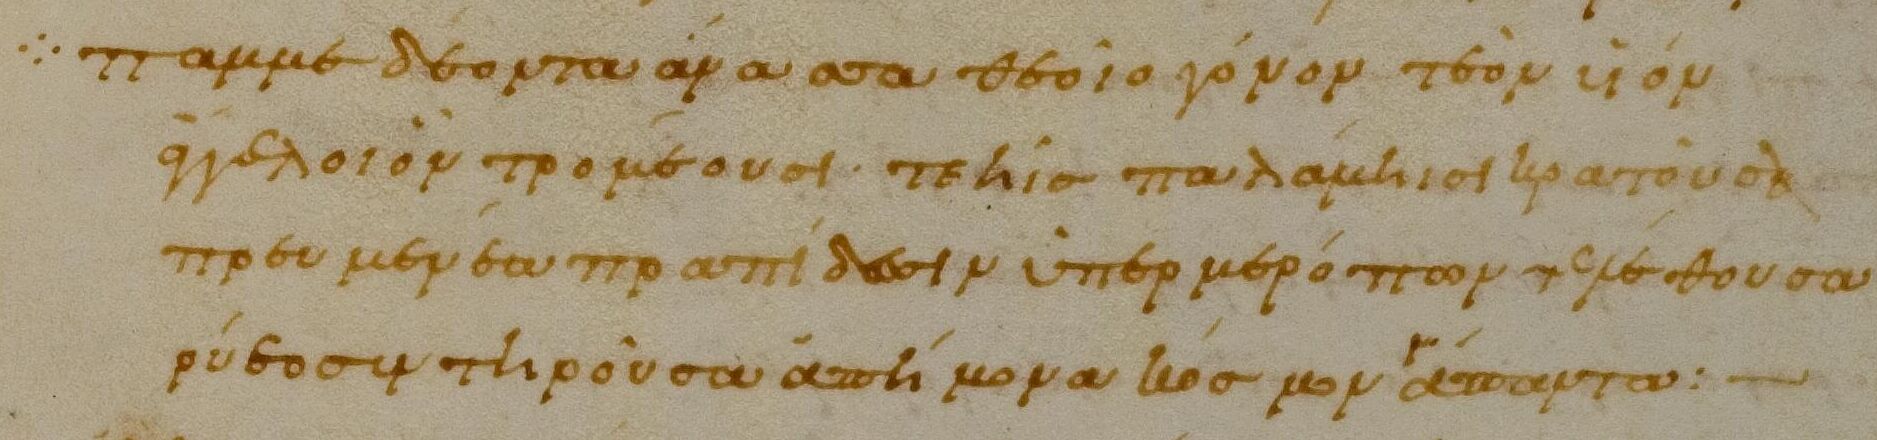 παμμεδέουσα ἄνασσα θεοῖο γόνον τεὸν υἱόν
ἄγγελοι ὃν τρομέουσι· τεῆις παλάμηισι κρατοῦσα
πρευμενέα πραπίδεσιν ὑπερ μερόπων τελέθουσα
ῥύεο συντηροῦσα ἀπήμονα κόσμον ἅπαντα: —